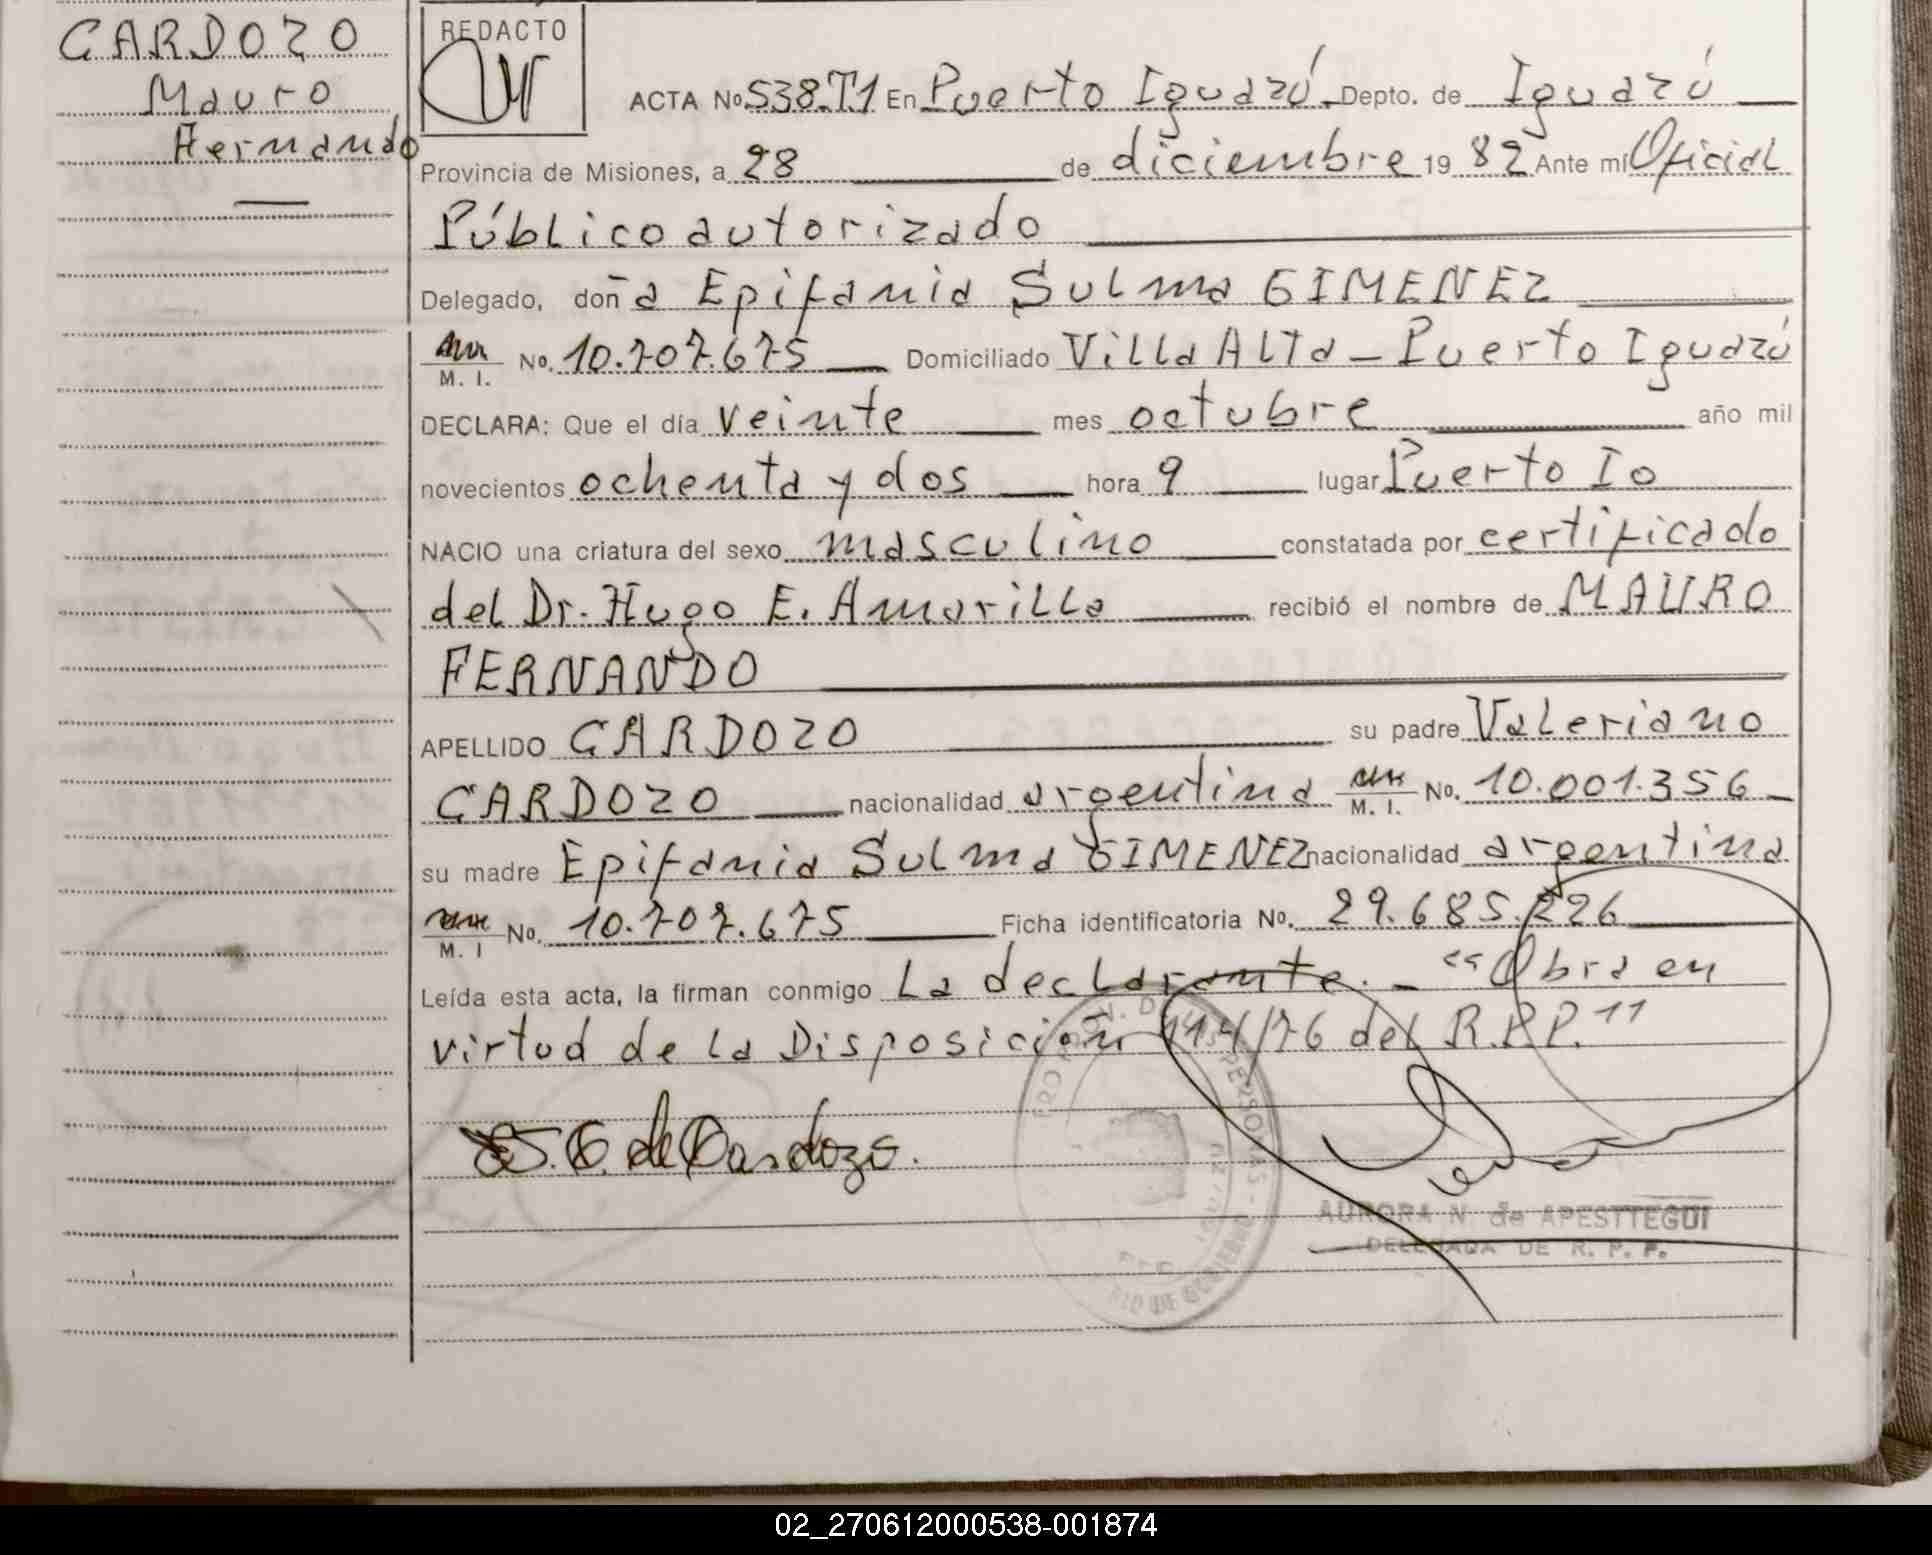 CARDOZO
Mauro
Hernando
REDACTO
ACTA No. 538.T1 En Puerto Iguazú Depto. de Iguazú
Provincia de Misiones, a 28 de diciembre 19 82 Ante mí Oficial
Público autorizado
Delegado, don a Epifania Sulma GIMENEZ
M. I. No. 10.707.675 Domiciliado Villa Alta - Puerto Iguazú
DECLARA: Que el día veinte mes octubre año mil
novecientos ochenta y dos hora 9 lugar Puerto Io
NACIO una criatura del sexo masculino constatada por certificado
del Dr. Hugo E. Amarilla recibió el nombre de MAURO
FERNANDO
APELLIDO CARDOZO su padre Valeriano
CARDOZO nacionalidad argentina M. I. No. 10.001.356
su madre Epifania Sulma GIMENEZ nacionalidad argentina
M. I No. 10.707.675 Ficha identificatoria No. 29.685.226
Leída esta acta, la firman conmigo La declarante. - "Obra en
virtud de la Disposición 114/76 del R.P.P."
S. G. de Cardozo.
AURORA N. de APESTTEGUI
DELEGADA DE R. P. P.
02_270612000538-001874